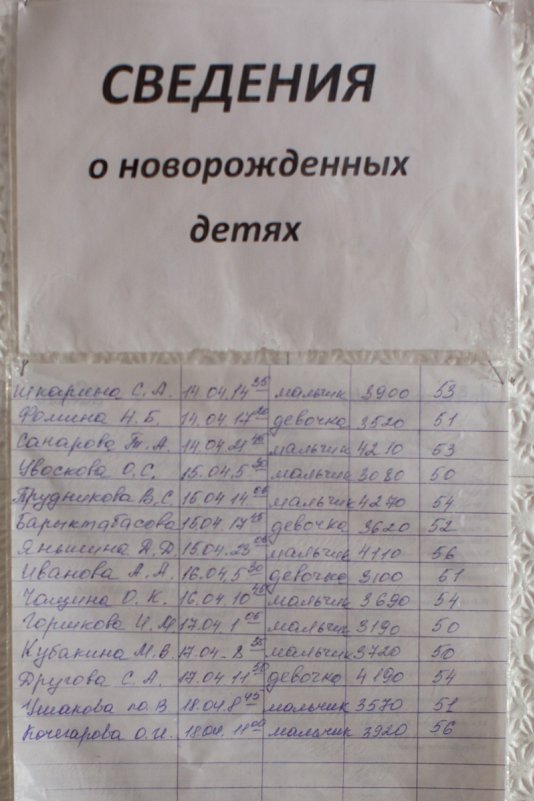 СВЕДЕНИЯ
о новорожденных
детях
Шкарина С. А. 14.04. 14 35 мальчик 3900 53
Фомина Н. Б. 14.04. 17 девочка 3520 51
Санарова Т. А. 14.04. 21 мальчик 4210 53
О. С. 15.04. 5 мальчик 3080 50
Трудникова В. С 15.04 14 05 мальчик 4270 54
Барыктабасова 15.04 17 девочка 3620 52
Яньшина Д. Д 15.04. 23 05 мальчик 4110 56
Иванова А. А. 16.04. 5 девочка 3100 51
О. К. 16.04. 10 мальчик 3690 54
Горшкова И. М 17.04. 1 05 мальчик 3190 50
Кубакина М. В. 17.04. 8 35 мальчик 3720 50
Другова С. А. 17.04 11 девочка 4190 54
Ушакова Ю. В 18.04. 8 45 мальчик 3570 51
Кочегарова О. И. 18.04. 11 00 мальчик 3920 56